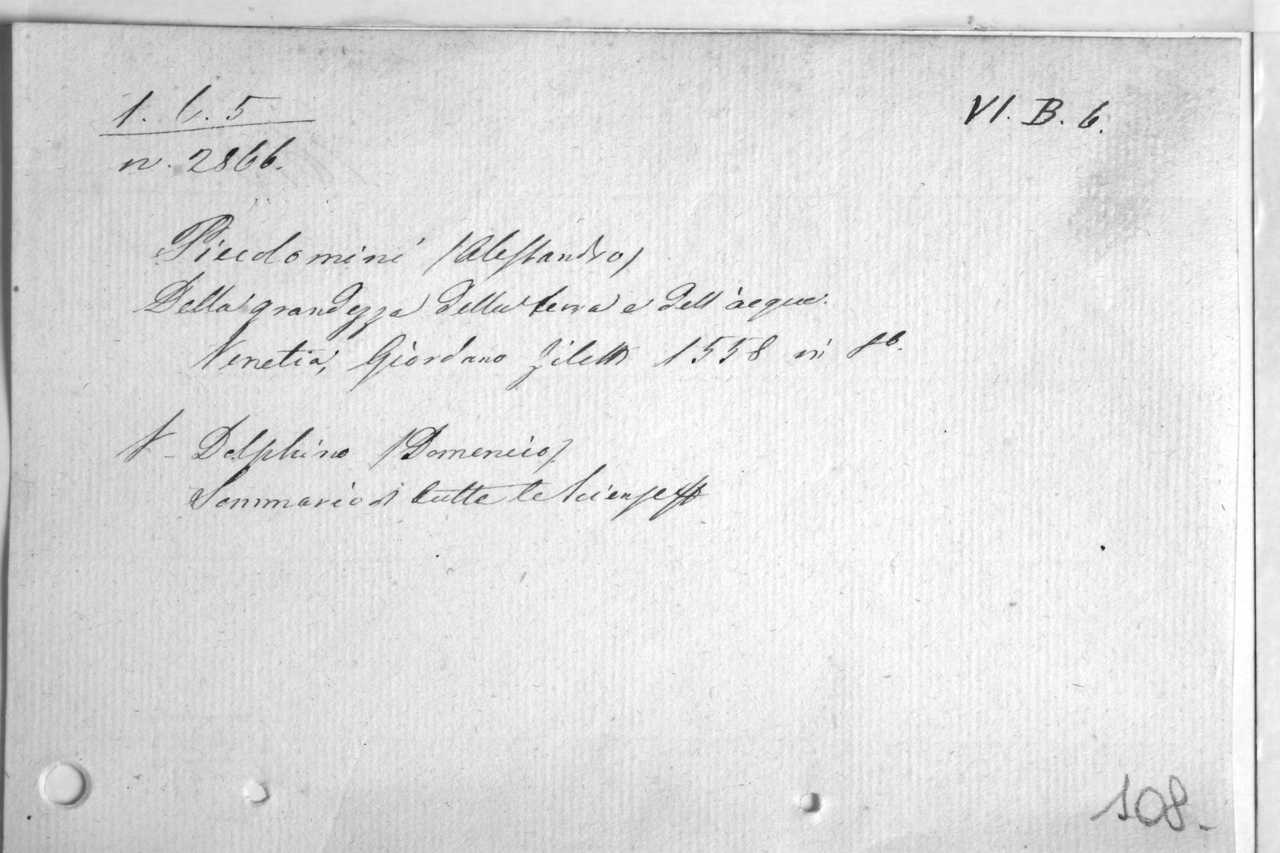 1. 6. 5
VI. B. 6.
n. 2866.
Piccolomini (Alessandro)
Della grandezza della terra e dell'acqua.
Venetia, Giordano Ziletti 1558 in 8º.
V - Delphino (Domenico)
Sommario di tutte le Scienze
108.-